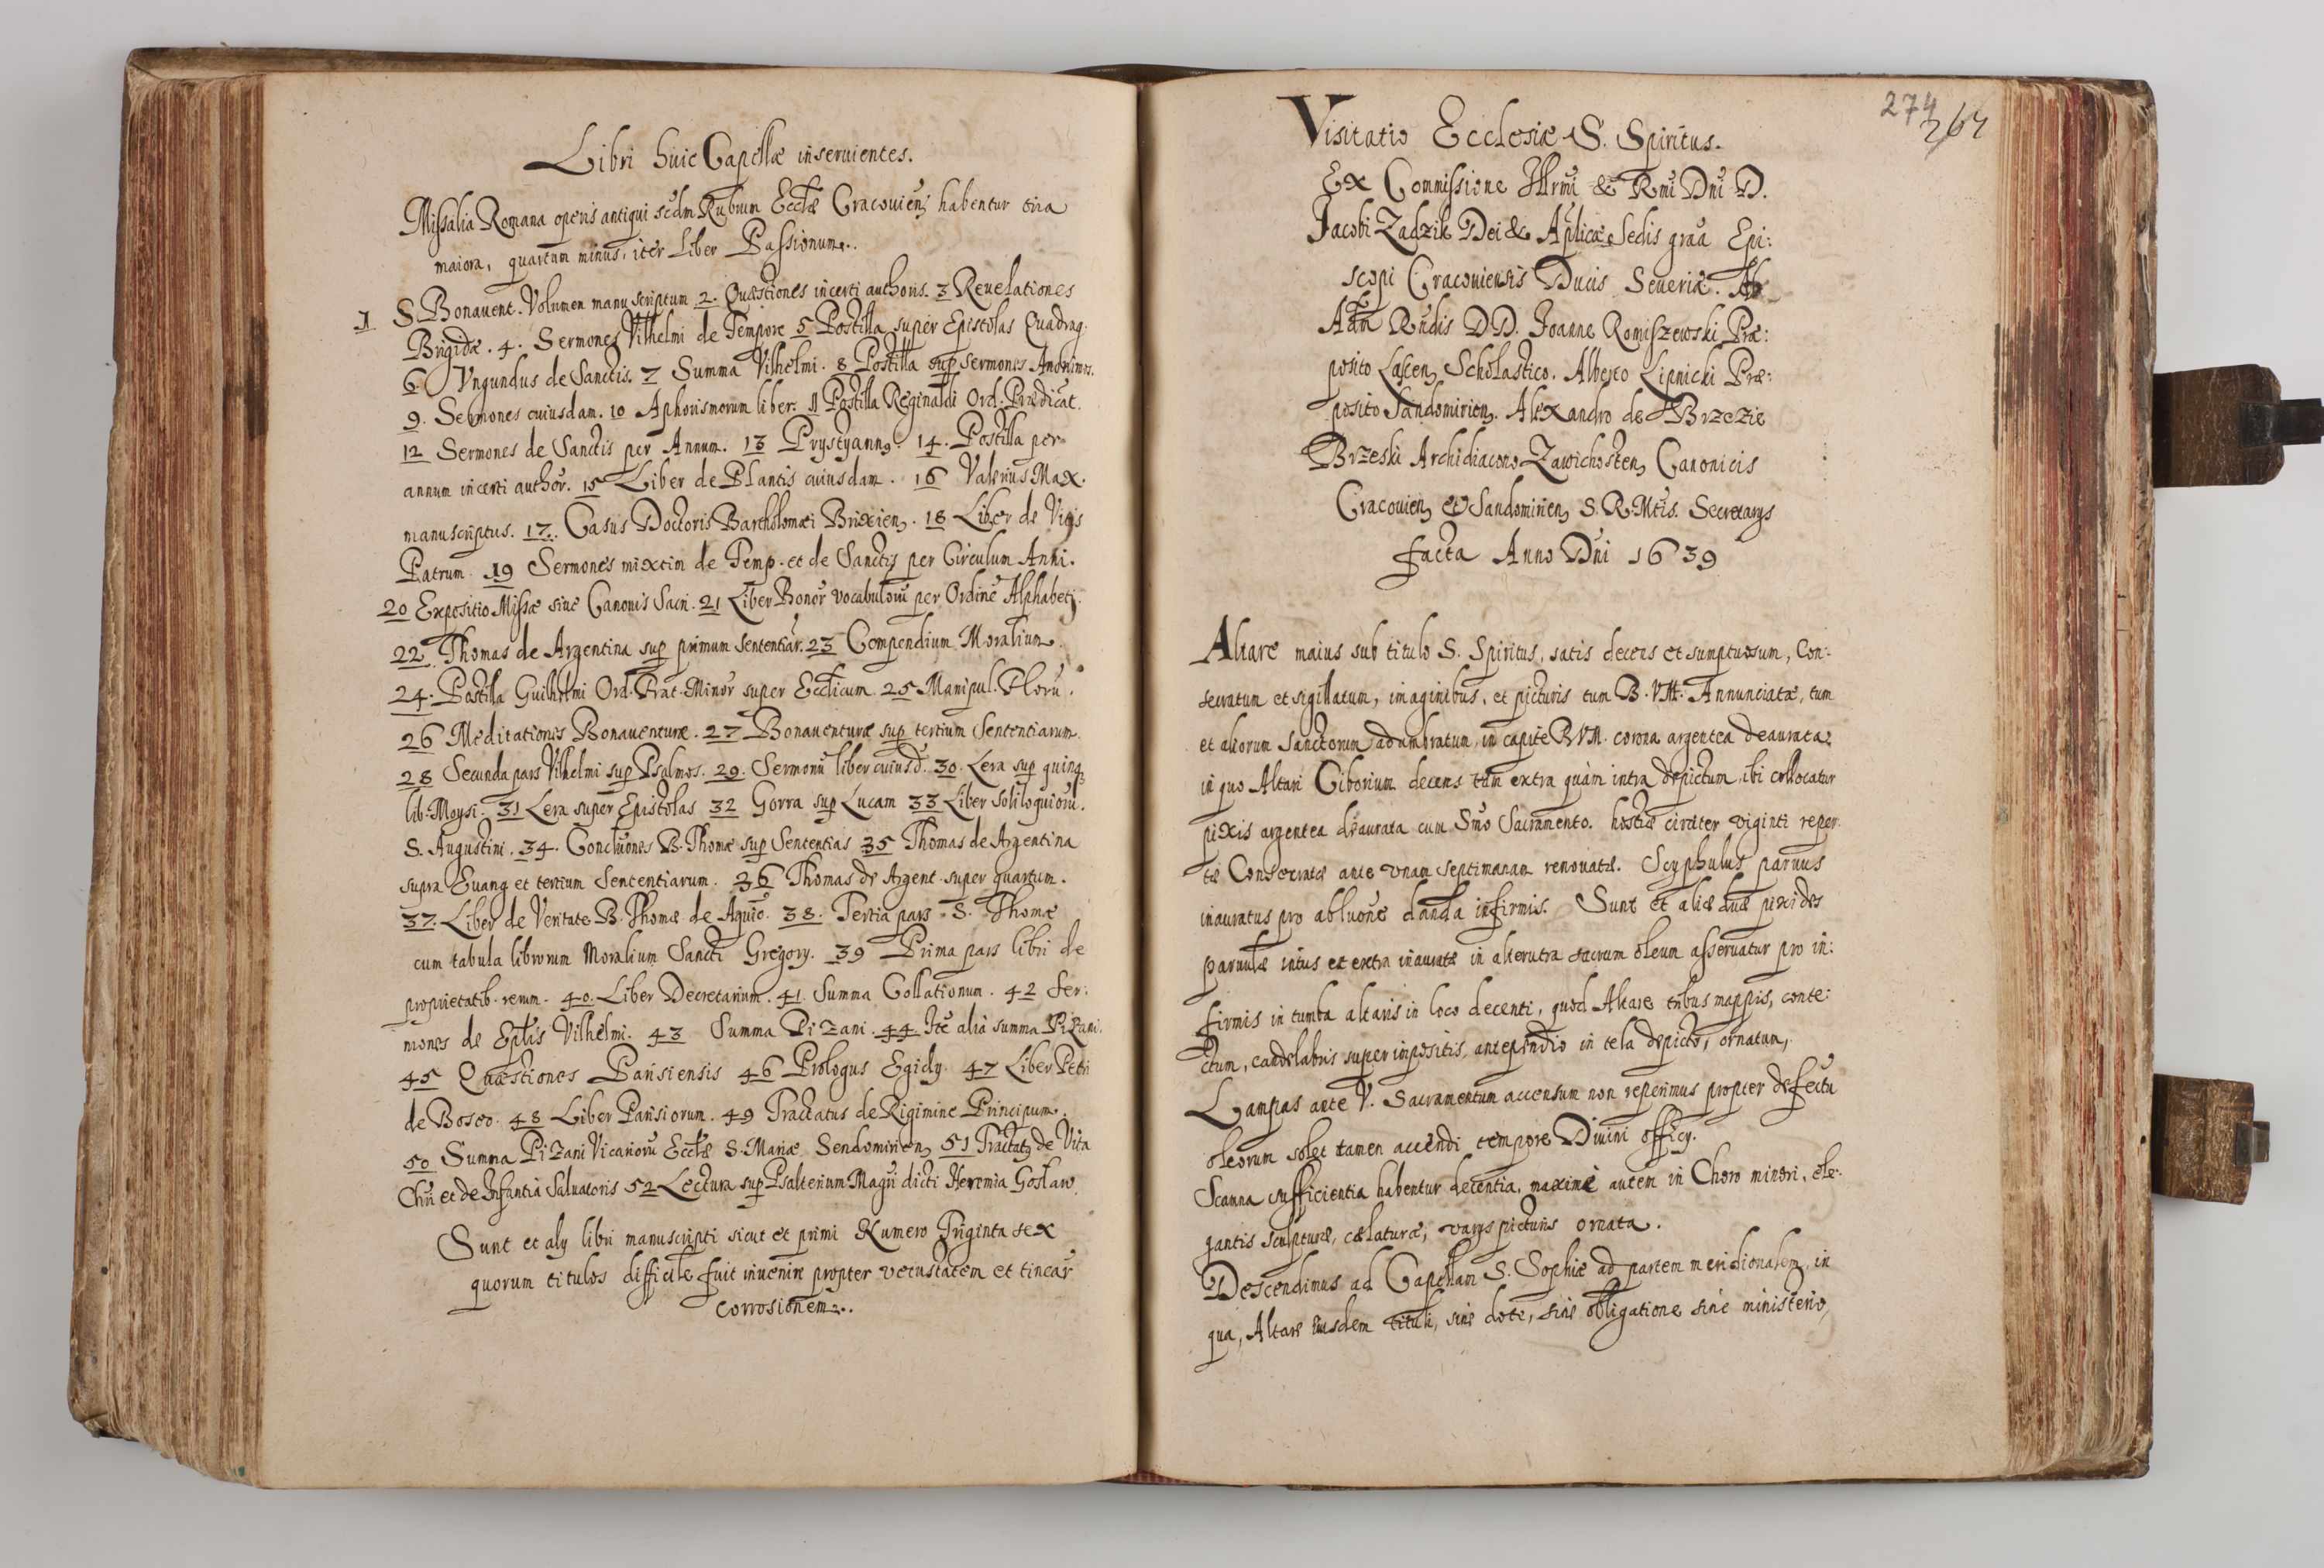 Libri huic Capellæ inseruientes.
Missalia Romana operis antiqui scdm Rubrum Ecclæ Cracouien habentur tria
maiora, quartum minus, iter Liber Passionum.
1 S. Bonauent. Volumen manuscriptum 2. Quæstiones incerti authoris. 3 Reuelationes
Brigidæ. 4. Sermones Vilhelmi de Tempore 5 Postilla super Epistolas Quadrag.
6. Yngundus de Sanctis. 7 Summa Vilhelmi. 8 Postilla sup sermones
9. Sermones cuiusdam. 10 Aphorismorum liber. 11 Postilla Reginaldi Ord: Prædicat.
12 Sermones de Sanctis per Annum. 13 14. Postilla per
annum incerti author. 15 Liber de Plantis cuiusdam. 16 Valerius Max.
manuscriptus. 17. Casus Doctoris Bartholomæi Brixien. 18 Liber de Vitis
Patrum. 19 Sermones mixtim de Temp. et de Sanctis per Circulum Anni.
20 Expositio Missæ siue Canonis Sacri. 21 Liber Bonor vocabuloru per Ordine Alphabeti.
22 Thomas de Argentina sup primum sententiar. 23 Compendium Moralium.
24. Postilla Guilhelmi Ord. Frat. Minor super Ecclicum. 25 Manipul. Floru.
26 Meditationes Bonauenturæ. 27 Bonauenturæ sup tertium Sententiarum.
28 Secunda pars Vilhelmi sup Psalmos. 29. Sermonu liber cuiusd. 30. Lera sup quinq
lib: Moysi. 31 Lera super Epistolas 32 Gorra sup Lucam 33 Liber soliloquioru.
S. Augustini. 34. Concluones B. Thomæ sup Sententias 35 Thomas de Argentina
supra Euang et tertium Sententiarum. 36 Thomas de Argent. super quartum.
37. Liber de Veritate B. Thomæ de Aquic. 38. Tertia pars S. Thomæ
cum tabula librorum Moralium Sancti Gregory. 39 Prima pars libri de
proprietatib. rerum. 40. Liber Decretarium. 41. Summa Collationum. 42 Ser:
mones de Eplis Vilhelmi. 43 Summa Pizani. 44. Ite alia summa Pizani.
45 Quæstiones Parisiensis 46 Prologus Egidy. 47 Liber Petri
de Bosco. 48 Liber Parisiorum. 49 Tractatus de Rigimine Principum.
50 Summa Pizani Vicarioru Ecclæ S. Mariæ Sendomirien 51 Tractatq de Vita
Chri et de Infantia Saluatoris 52 Lectura sup Psalterium Magri dicti Heremia Goslaw
Sunt et aly libri manuscripti sicut et primi Numero Triginta sex
quorum titulos difficile fuit inuenire propter vetustatem et tinear
corrosionem.
274
264
Visitatio Ecclesiæ S. Spiritus.
Ex Commissione Illrmi & Rmi Dni D.
Jacobi Zadzik Dei & Aplicæ Sedis graa Epi:
scopi Cracouiensis Ducis Seueriæ. Ab
Adm Rndis DD. Joanne Romiszewski Præ:
posito Lascen Scholastico. Alberto Lipnicki Præ:
posito Sandomirien. Alexandro de Brzezie
Brzeski Archidiacono Zawichosten Canonicis
Cracouien et Sandomirien S. R. Mtis. Secretarys
facta Anno Dni 1639
Altare maius sub titulo S. Spiritus, satis decens et sumptuosum, Con:
secratum et sigillatum, imaginibus, et picturis tum B. V.M. Annunciatæ, tum
et aliorum Sanctorum adumbratum, in capite B V M. corona argentea deaurata,
in quo Altari Ciborium decens tam extra quàm intra depictum, ibi collocatur
pixis argentea deaurata cum Smo Sacramento. hostiæ circiter viginti reper
tæ Consecratæ ante vnam septimanam renouatæ. Scyphulus paruus
inauratus pro abluone danda infirmis. Sunt et aliæ duæ pixides
paruulæ intus et extra inauratæ in alterutra sacrum oleum asseruatur pro in:
firmis in tumba altaris in loco decenti, quod Altare tribus mappis, conte:
ctum, candelabris superimpositis, antependio in tela depicto, ornatum,
Lampas ante V. Sacramentum accensum non reperimus propter defectu
oleorum solet tamen accendi tempore Diuini officy.
Scamna sufficientia habentur decentia, maximè autem in Choro minori, ele:
gantis sculpturæ, cælaturæ, varys picturis ornata.
Descendimus ad Capellam S. Sophiæ ad partem meridionalem, in
qua, Altare eiusdem tituli, sine dote, sine obligatione sine ministerio,